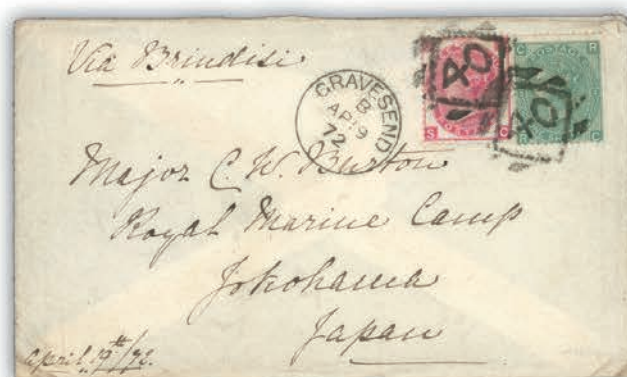 Via Brindisi
GRAVESEND
B
AP 19
72
40
40
S C
C R
POSTAGE
R C
Major C. W. Burton
Royal Marine Camp
Yokohama
Japan
April 19th/72.